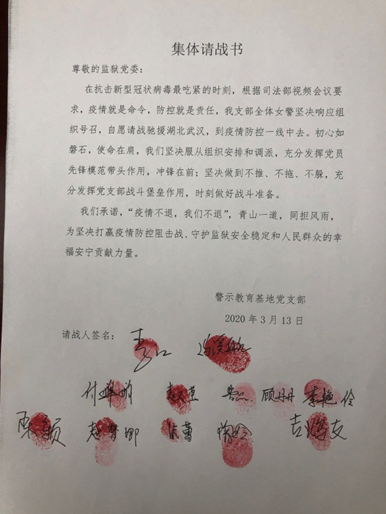 集体请战书
尊敬的监狱党委：
在抗击新型冠状病毒最吃紧的时刻，根据司法部视频会议要
求，疫情就是命令，防控就是责任，我支部全体女警坚决响应组
织号召，自愿请战驰援湖北武汉，到疫情防控一线中去。初心如
磐石，使命在肩，我们坚决服从组织安排和调派，充分发挥党员
先锋模范带头作用，冲锋在前；坚决做到不推、不拖、不躲，充
分发挥党支部战斗堡垒作用，时刻做好战斗准备。
我们承诺，“疫情不退，我们不退”，青山一道，同担风雨，
为坚决打赢疫情防控阻击战、守护监狱安全稳定和人民群众的幸
福安宁贡献力量。
警示教育基地党支部
2020 年 3 月 13 日
请战人签名：
顾丹丹 李艳伶